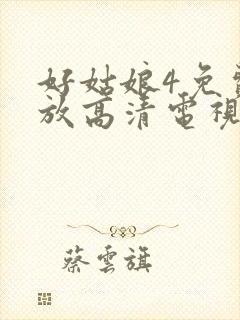 好姑娘4免
放高清電視
蔡雲旗